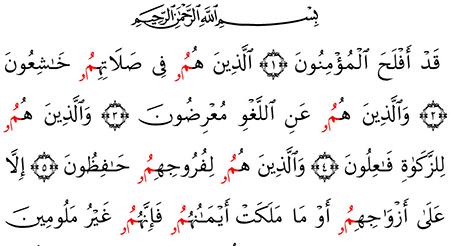 بِسْمِ ٱللَّهِ ٱلرَّحْمَٰنِ ٱلرَّحِيمِ
قَدْ أَفْلَحَ ٱلْمُؤْمِنُونَ ﴿١﴾ ٱلَّذِينَ هُمُۥ فِى صَلَاتِهِمُۥ خَـٰشِعُونَ
﴿٢﴾ وَٱلَّذِينَ هُمُۥ عَنِ ٱللَّغْوِ مُعْرِضُونَ ﴿٣﴾ وَٱلَّذِينَ هُمُۥ
لِلزَّكَوٰةِ فَـٰعِلُونَ ﴿٤﴾ وَٱلَّذِينَ هُمُۥ لِفُرُوجِهِمُۥ حَـٰفِظُونَ ﴿٥﴾ إِلَّا
عَلَىٰ أَزْوَٰجِهِمُۥ أَوْ مَا مَلَكَتْ أَيْمَـٰنُهُمُۥ فَإِنَّهُمُۥ غَيْرُ مَلُومِينَ